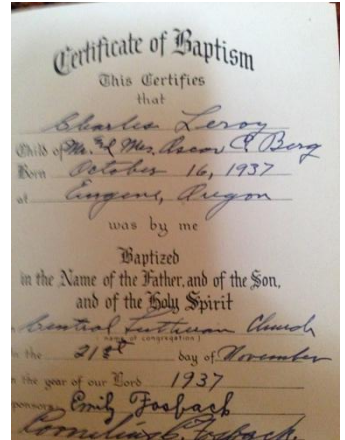 Certificate of Baptism
This Certifies
that
Charles Leroy
Child of Mr. & Mrs. Oscar C. Berg
Born October 16, 1937
at Eugene, Oregon
was by me
Baptized
in the Name of the Father, and of the Son,
and of the Holy Spirit
Central Lutheran Church
(name of congregation)
the 21st day of November
the year of our Lord 1937
ponsors Emily Fosback
Cornelius Fosback